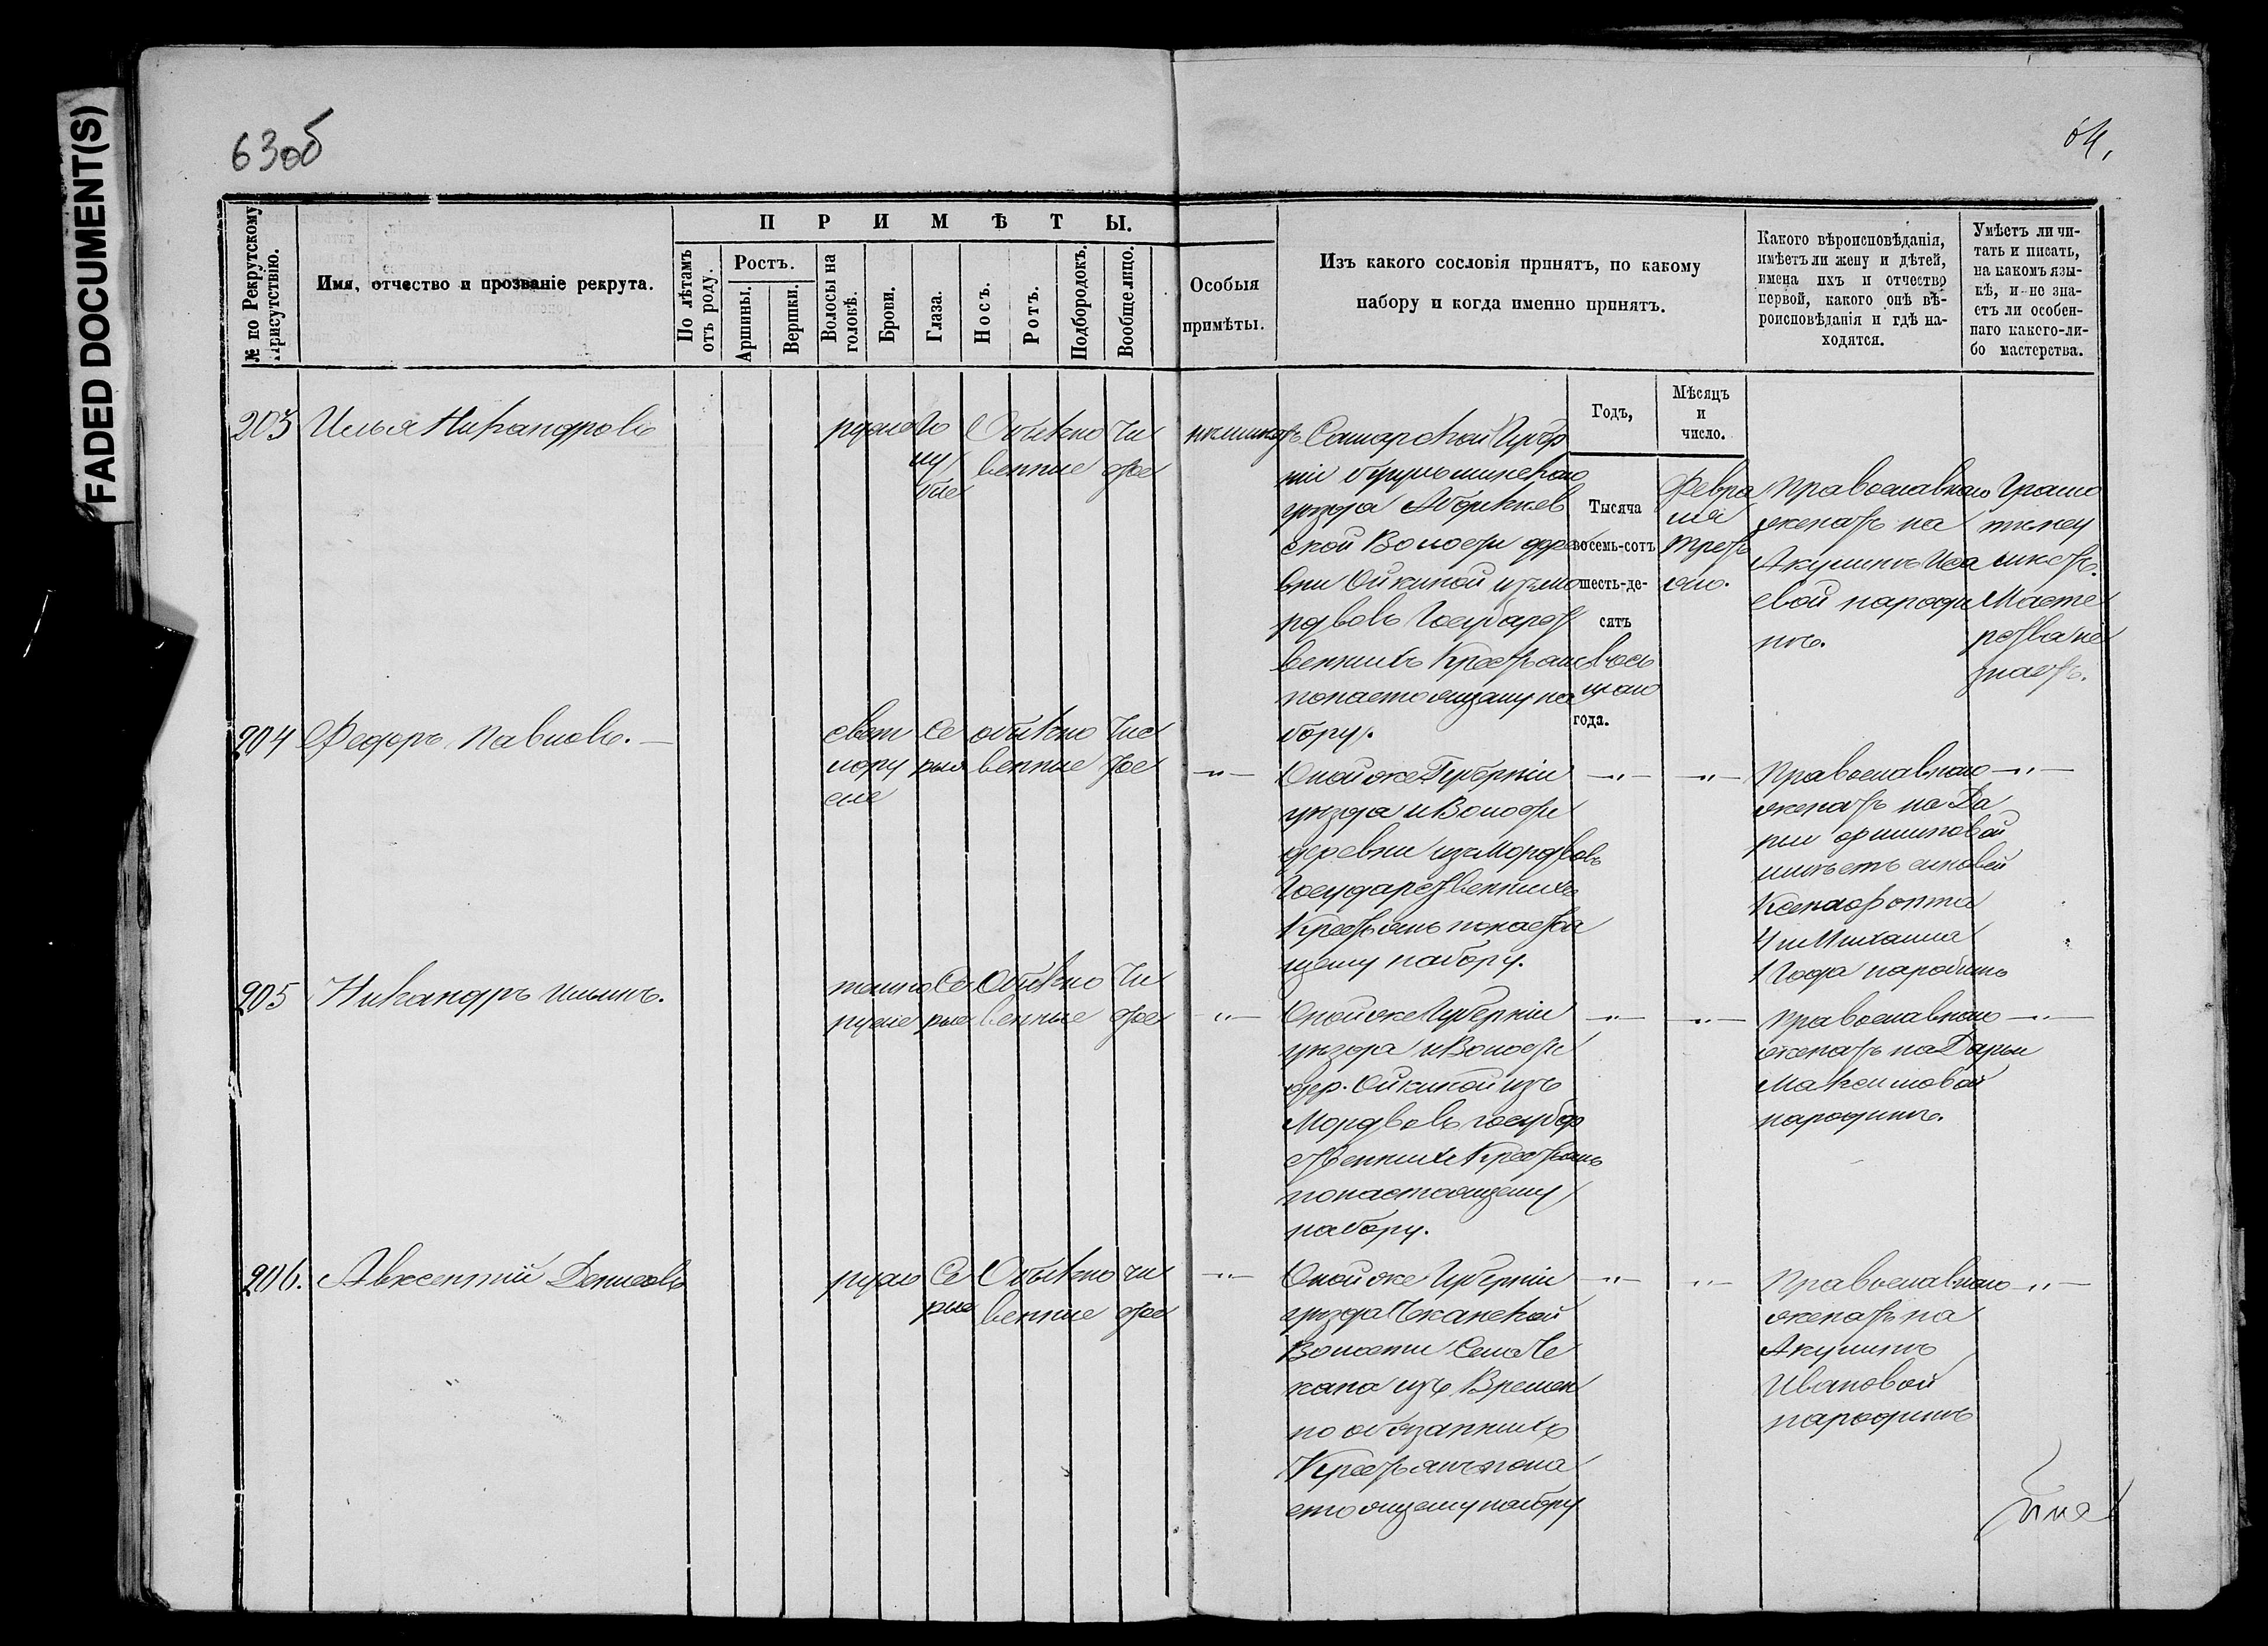 FADED DOCUMENT(S)
63об
64,
№ по Рекрутскому Присутствію.
Имя, отчество и прозваніе рекрута.
ПРИМѢТЫ.
По лѣтамъ отъ роду.
Ростъ.
Аршины.
Вершки.
Волосы на головѣ.
Брови.
Глаза.
Носъ.
Ротъ.
Подбородокъ.
Вообще лицо.
Особыя
примѣты.
Изъ какого сословія принятъ, по какому
набору и когда именно принятъ.
Какого вѣроисповѣданія,
имѣетъ ли жену и дѣтей,
имена ихъ и отчество
первой, какого онѣ вѣ-
роисповѣданія и гдѣ на-
ходятся.
Умѣетъ ли чи-
тать и писать,
на какомъ язы-
кѣ, и не зна-
етъ ли особен-
наго какого-ли-
бо мастерства.
Годъ,
Мѣсяцъ
и
число.
203 Илья Никандровъ
русые
Го
лу
бые
Обыкно
венные
Чи
стое
Самарской Губер
ніи Бугульминскаго
уѣзда
ской Волости дере
вни Ойкиной изъ мо
рдвовъ Государст
венныхъ Крестьянъ
по настоящему на
бору.
Тысяча
восемь-сотъ
шесть-де-
сятъ
года.
Февра
ля
треть
яго.
Православнаго
женатъ на
Акулинѣ Иса
евой народи
нѣ.
Грамо
тѣ не у
мѣетъ.
Масте
рства не
знаетъ.
204 Федоръ Павловъ. —
светл
лору
сые
Се
рые
обыкно
венные
Чис
тое
—"—
Оной же Губерніи
уѣзда и Волости
деревни изъ Мордвовъ
Государственныхъ
Крестьянъ по настоя
щему набору.
—"— —"—
Православнаго
женатъ на Да
рьи
имѣетъ сыновей
Ксенофонта
4 и Михаила
1 Года на родинѣ
—"—
205 Никандръ Ильинъ.
темно
русые
Се
рые
Обыкно
венные
Чи
стое
—"—
Оной же Губерніи
уѣзда и Волости
дер. Ойкиной изъ
Мордвовъ государ
ственныхъ Крестьянъ
по настоящему
набору.
—"— —"—
Православнаго
женатъ на Дарьи
Максимовой
на родинѣ.
—"—
206. Авксентій Денисовъ
русые
Се
рые
Обыкно
венные
чи
стое
—"—
Оной же Губерніи
уѣзда Чеканской
Волости Села Че
кана изъ Времен
но обязанныхъ
Крестьянъ по на
стоящему набору
—"— —"—
Православнаго
женатъ на
Акулинѣ
Ивановой
на родинѣ
—"—